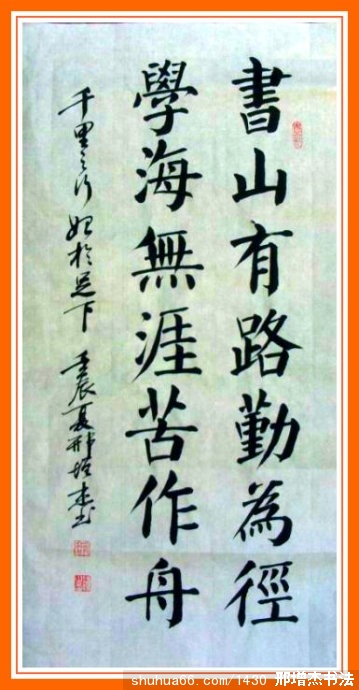 書山有路勤為徑
學海無涯苦作舟
千里之行始於足下 壬辰夏邢增杰书
shuhua60.com/1430 邢增杰书法